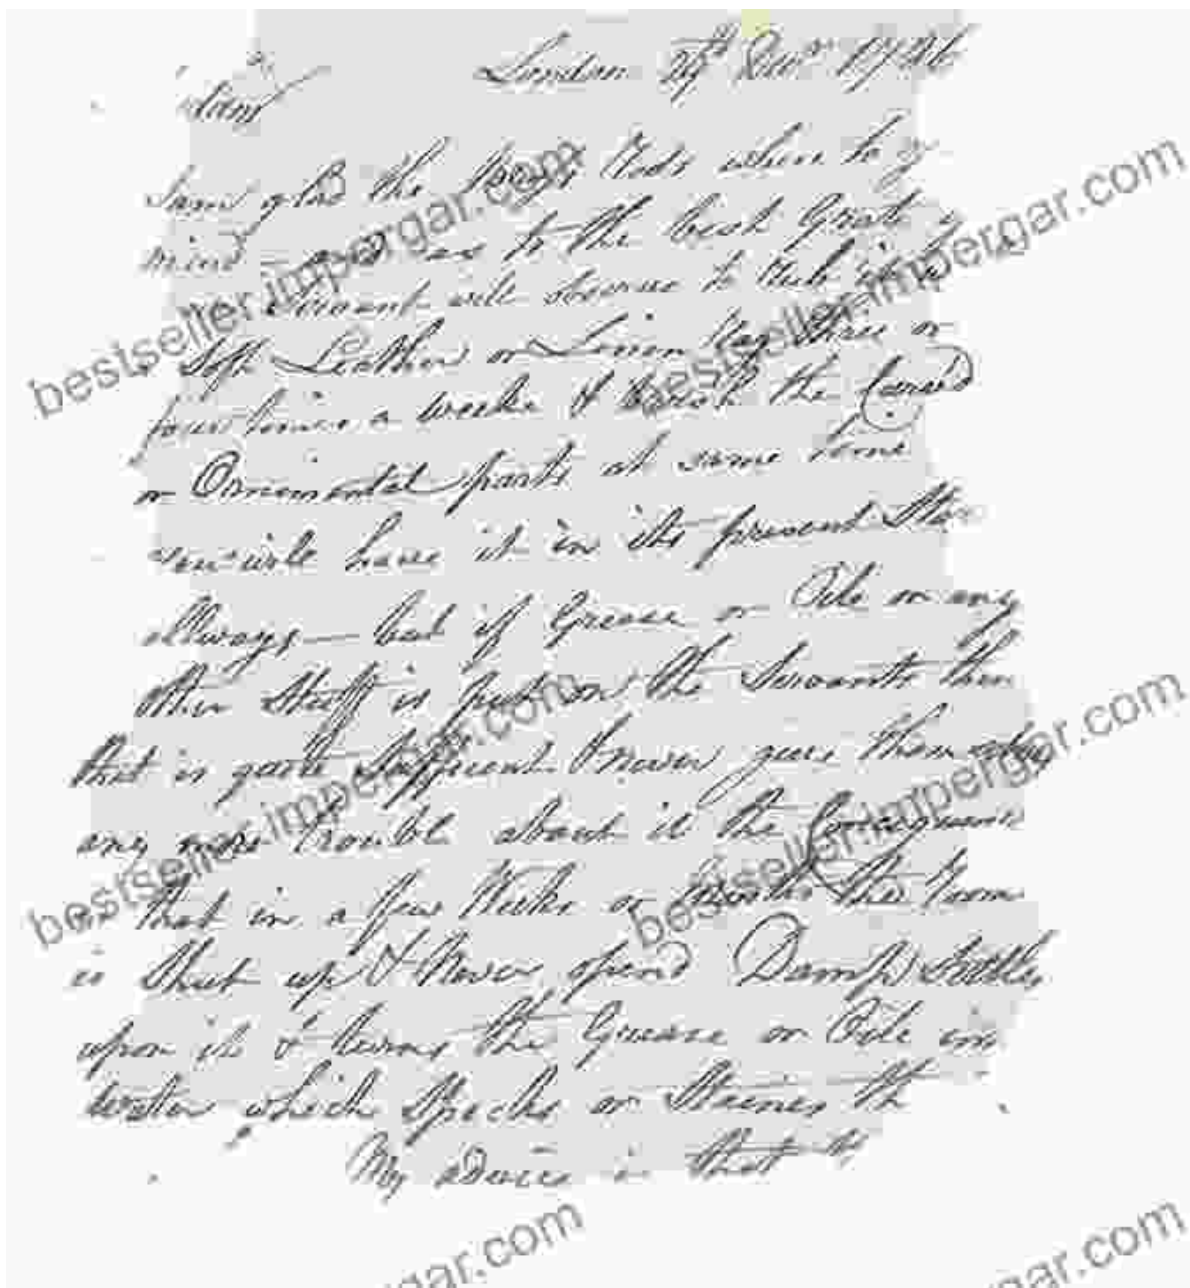 London 29th Decr
I am glad the Bright Rods where to yr
mind and as to the best Grate
Servant will observe to Rub it
Soft Leather or Linin Rag three or
four times a weeke & brush the Carv'd
or Ornimental parts at same time
you will have it in its present Stat
allways — but if Grease or Oile or any
other Stuff is put on the Servants think
that is quite sufficent & never give themselves
any more trouble about it the Consequence
is that in a few Weeks or Months the room
is Shut up & Never opend Damp Settles
upon it & turns the Grease or Oile in
water which Specks or Staines th
My advice is that
bestseller.impergar.com
bestseller.impergar.com
bestseller.impergar.com
bestseller.impergar.com